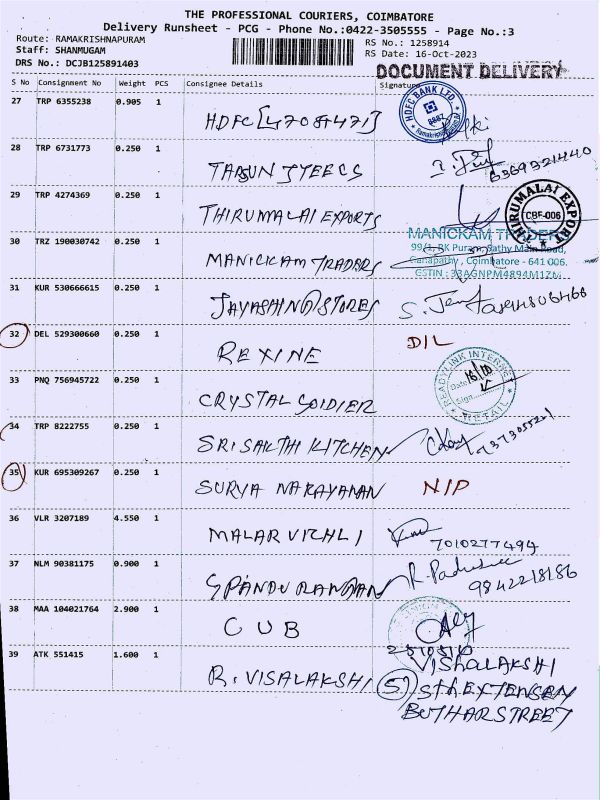 THE PROFESSIONAL COURIERS, COIMBATORE
Delivery Runsheet - PCG - Phone No.:0422-3505555 - Page No.:3
Route: RAMAKRISHNAPURAM RS No.: 1258914
Staff: SHANMUGAM RS Date: 16-Oct-2023
DRS No.: DCJB125891403 DOCUMENT DELIVERY
S No Consignment No Weight PCS Consignee Details Signature
27 TRP 6355238 0.905 1 HDFC HDFC BANK LTD.
28 TRP 6731773 0.250 1 6369321440
29 TRP 4274369 0.250 1 THIRUMALAI EXPORTS THIRUMALAI EXPORT CBE-006
30 TRZ 190030742 0.250 1 MANICKAM TRADERS MANICKAM
Ganapathy, Coimbatore - 641 006.
GSTIN : 33AGNPM4894M1ZM
31 KUR 530666615 0.250 1 STORES
32 DEL 529300660 0.250 1 REXINE D/L
33 PNQ 756945722 0.250 1 CRYSTAL SOIDIER READYLINK INTERNET Date 16/10 Sign RETAIL
34 TRP 8222755 0.250 1 SRI SAKTHI KITCHEN
35 KUR 695309267 0.250 1 SURYA NARAYANAN N/P
36 VLR 3207189 4.550 1 MALAR VIZHLI 7010277494
37 NLM 90381175 0.900 1 9842218186
38 MAA 104021764 2.900 1 CUB
39 ATK 551415 1.600 1 R. VISALAKSHI VISHALAKSHI
5th EXTENSEN
STREET